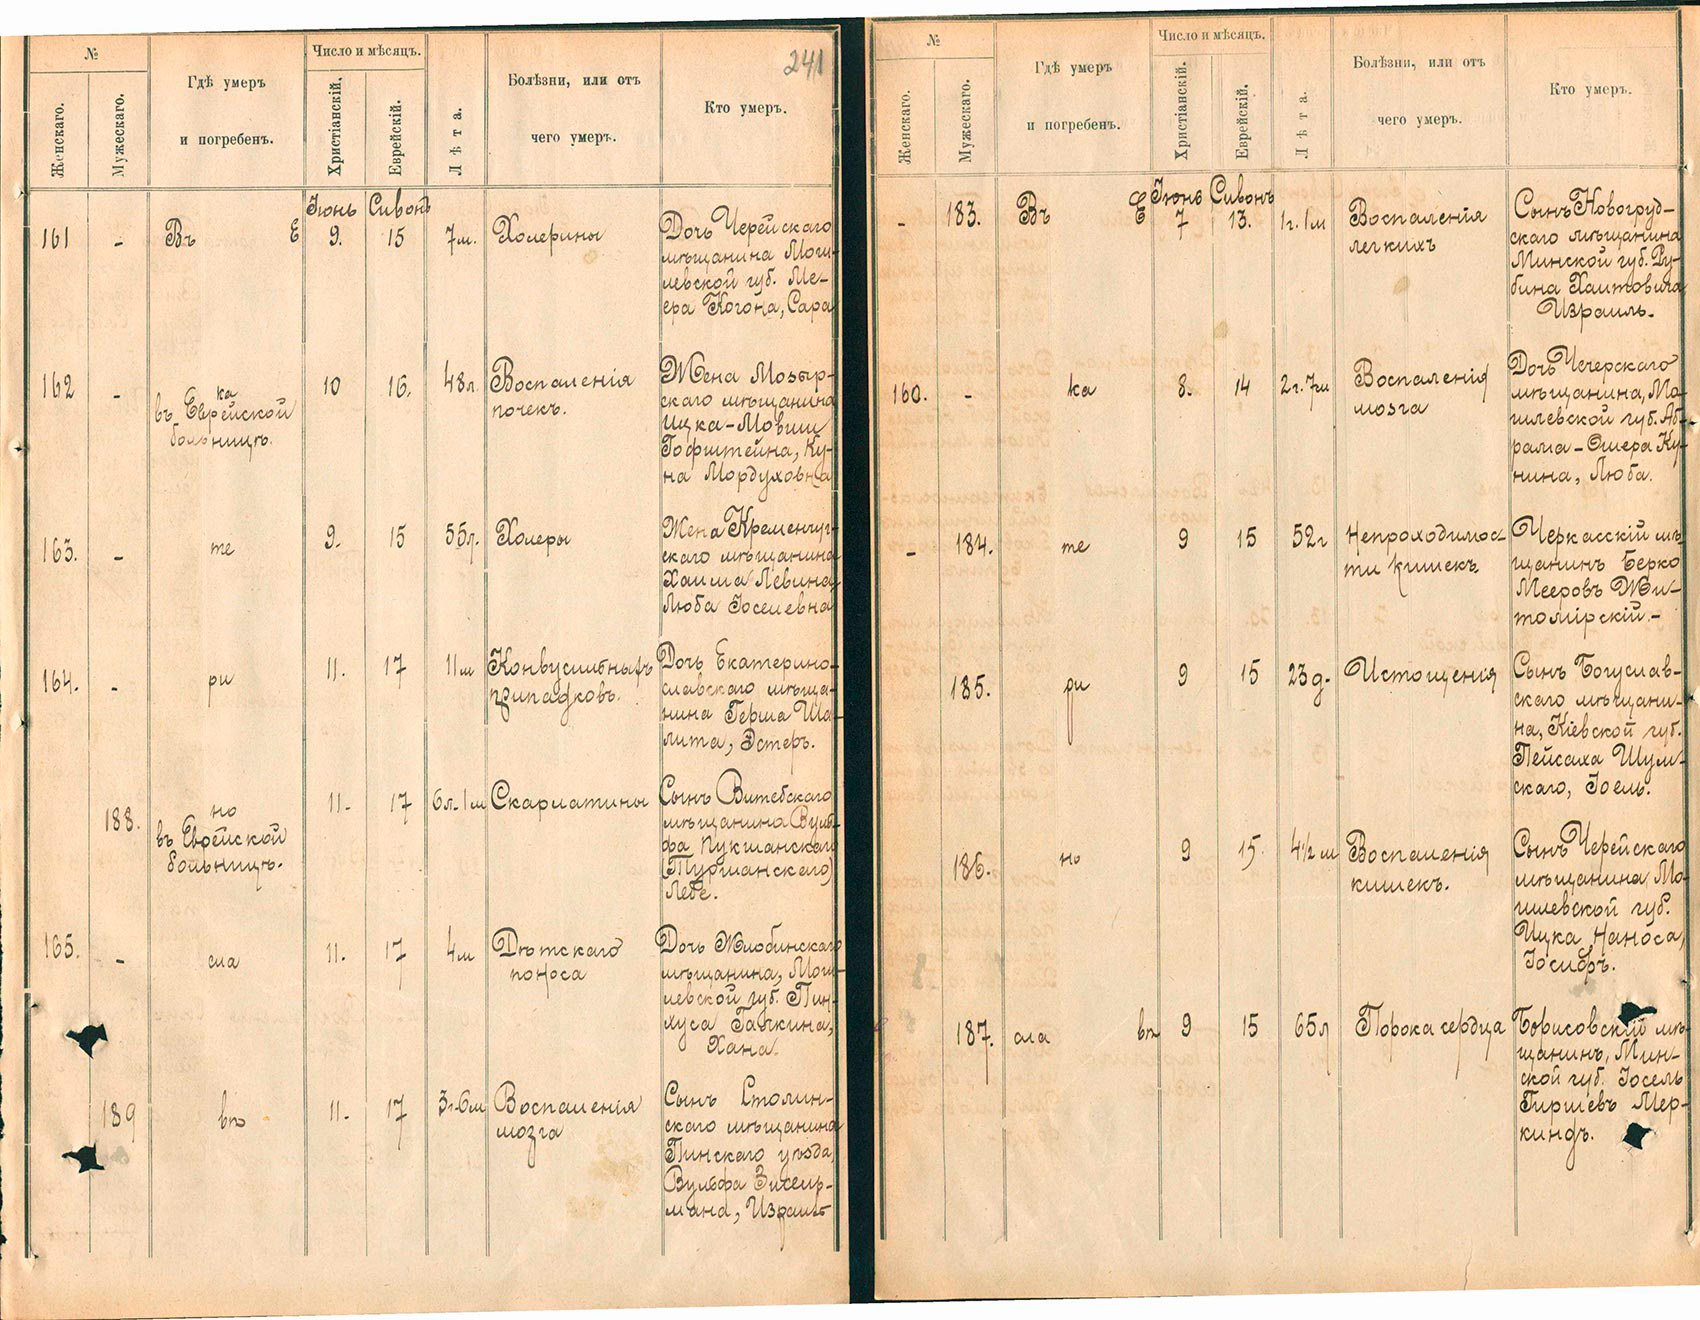 №
Женскаго.
Мужескаго.
Гдѣ умеръ
и погребенъ.
Число и мѣсяцъ.
Христіанскій.
Еврейскій.
Лѣта.
Болѣзни, или отъ
чего умеръ.
241
Кто умеръ.
Іюнь Сивонъ
161 - Въ Е 9. 15 7м. Холерины
Дочь Черейскаго
мѣщанина Моги-
левской губ. Ме-
ера Когона, Сара
162 - ка
въ Еврейской
больницѣ.
10 16. 48л. Воспаленія
почекъ.
Жена Мозыр-
скаго мѣщанина
Ицка-Мовши
Гофштейна, Ку-
на Мордуховна
163. - те 9. 15 55л. Холеры
Жена Кременчуг-
скаго мѣщанина
Хаима Левина,
Люба Іоселевна
164. - ри 11. 17 11м Конвусивныхъ
припадковъ.
Дочь Екатерино-
славскаго мѣща-
нина Герша Ша-
лита, Эстеръ.
188. но
въ Еврейской
больницѣ.
11- 17 6л-1м Скарлатины
Сынъ Витебскаго
мѣщанина Вуль-
фа Пукшанскаго
(Туршанскаго)
Лебе.
165. - сла 11. 17 4м Дѣтскаго
поноса
Дочь Жлобинскаго
мѣщанина, Моги-
левской губ. Пин-
хуса Галкина,
Хана.
189 вѣ 11- 17 3г-6м Воспаленія
мозга
Сынъ Столин-
скаго мѣщанина
Пинскаго уѣзда,
Вульфа Зихер-
мана, Израиль
№
Женскаго.
Мужескаго.
Гдѣ умеръ
и погребенъ.
Число и мѣсяцъ.
Христіанскій.
Еврейскій.
Лѣта.
Болѣзни, или отъ
чего умеръ.
Кто умеръ.
Іюнь Сивонъ
- 183. Въ Е 7 13. 1г.1м Воспаленія
легкихъ
Сынъ Новогруд-
скаго мѣщанина
Минской губ. Ру-
бина Хаитовича
Израиль.
160. - ка 8. 14 2г.7м Воспаленія
мозга
Дочь Чечерскаго
мѣщанина, Мо-
гилевской губ. Аб-
рама-Ошера Ку-
нина, Люба.
- 184. те 9 15 52г Непроходимос-
ти кишекъ.
Черкасскій мѣ-
щанинъ Берко
Мееровъ Жи-
томірскій.-
185. ри 9 15 23д. Истощенія
Сынъ Богуслав-
скаго мѣщани-
на, Кіевской губ.
Пейсаха Шум-
скаго, Іоель.
186. но 9 15. 4½м Воспаленія
кишекъ.
Сынъ Черейскаго
мѣщанина Мо-
гилевской губ.
Ицка Наноса,
Іосифъ.
187. сла вѣ 9 15 65л Порока сердца
Борисовскій мѣ-
щанинъ, Мин-
ской губ. Іосель
Гиршевъ Мер-
киндъ.